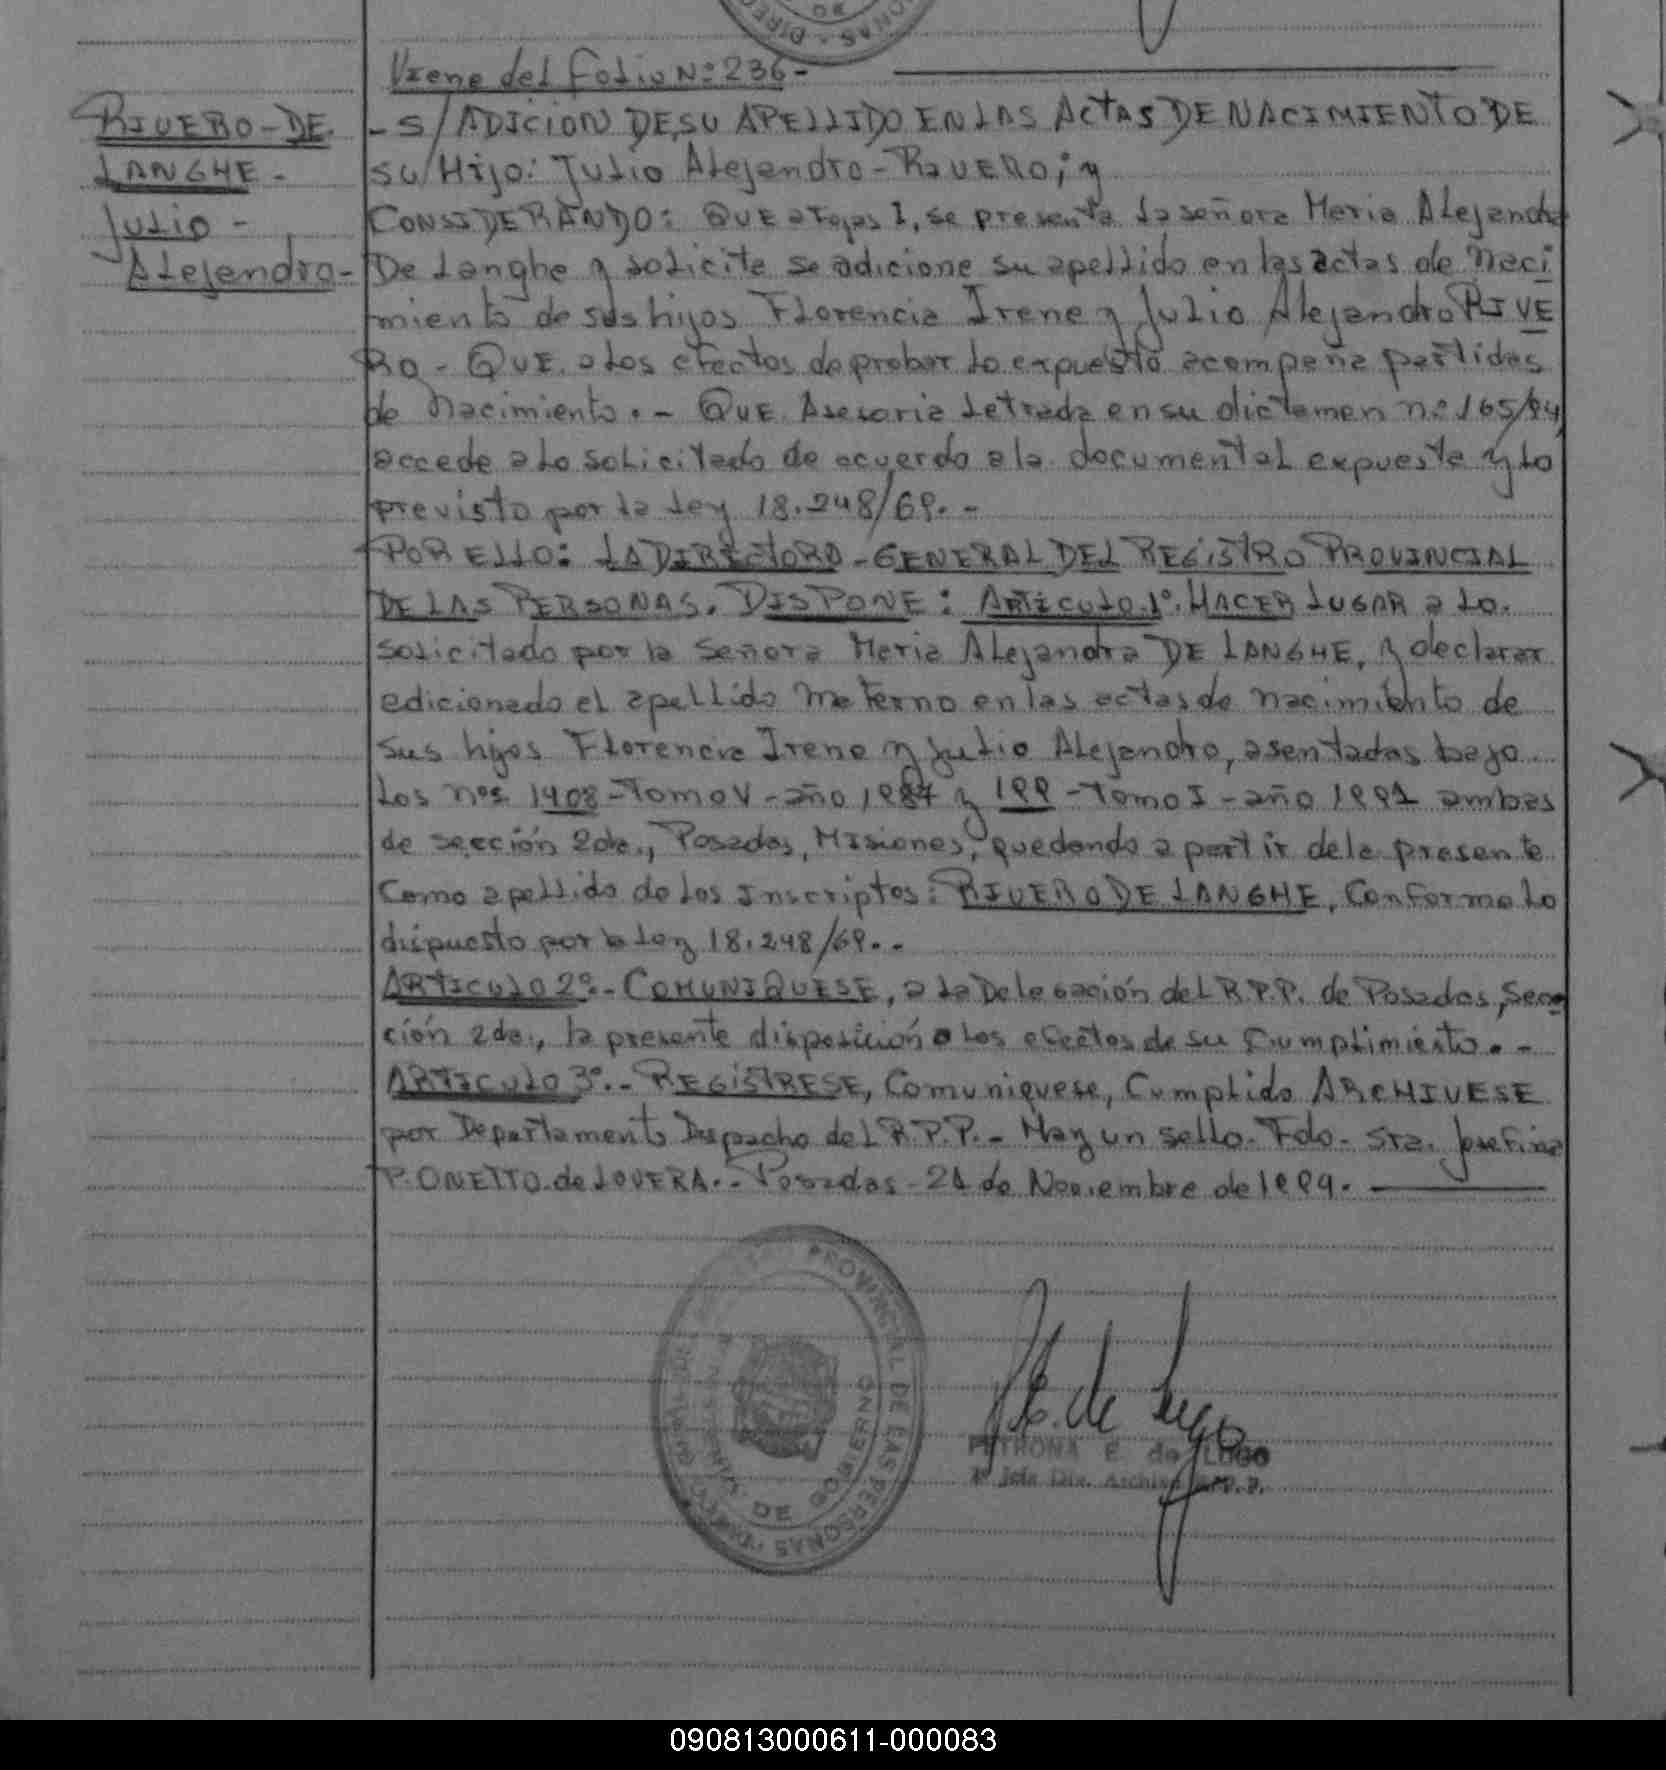 Viene del Folio Nº 236-
RIVERO-DE
LANGHE-
Julio-
Alejandro-
-S/ADICION DE SU APELLIDO EN LAS ACTAS DE NACIMIENTO DE
su Hijo: Julio Alejandro-RIVERO; y
CONSIDERANDO: QUE a Fojas 1, se presenta la señora Maria Alejandra
De Langhe y solicita se adicione su apellido en las actas de naci
miento de sus hijos Florencia Irene y Julio Alejandro RIVE
RO- QUE a los efectos de probar lo expuesto acompaña partidas
de nacimiento.- QUE Asesoria Letrada en su dictamen nº 165/94,
accede a lo solicitado de acuerdo a la documental expuesta y lo
previsto por la Ley 18.248/69.-
POR ELLO: LA DIRECTORA-GENERAL DEL REGISTRO PROVINCIAL
DE LAS PERSONAS. DISPONE: ARTICULO 1º. HACER LUGAR a lo
solicitado por la Señora Maria Alejandra DE LANGHE, y declarar
adicionado el apellido materno en las actas de nacimiento de
sus hijos Florencia Irene y Julio Alejandro, asentadas bajo
los nos 1408-Tomo V-año 1987 y 199-Tomo I-año 1991 ambas
de sección 2da., Posadas, Misiones, quedando a partir de la presente
Como apellido de los inscriptos: RIVERO DE LANGHE, Conforme lo
dispuesto por la Ley 18.248/69.-
ARTICULO 2º.- COMUNIQUESE, a la Delegación del R.P.P. de Posadas, Sec
ción 2da., la presente disposición a los efectos de su Cumplimiento.-
ARTICULO 3º.- REGISTRESE, Comuniquese, Cumplido ARCHIVESE
por Departamento Despacho del R.P.P.- Hay un sello. Fdo. Sra. Josefina
P. ONETTO de LOVERA.- Posadas-21 de Noviembre de 1994.
PROVINCIAL DE LAS PERSONAS
DE GOBIERNO
PETRONA E. de LUGO
Jefa Div. Archivo R.P.P.
090813000611-000083